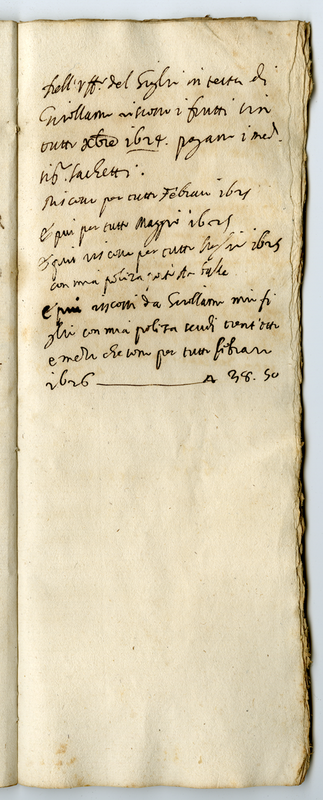 Nell' Uff.° del Siglri in testa di
Girollamo riscosso i frutti sin
tutto Xbre 1624. pagano i med.
sig.ri Sachetti.
riscosso per tutto Febraro 1625
E più per tutto Maggio 1625
E più riscosso per tutto 1625
con mia poliza
e più riscossi da Girollamo mio fi
glio con mia poliza scudi trent'otto
e mezo che sono per tutto febraro
1626 38. 50